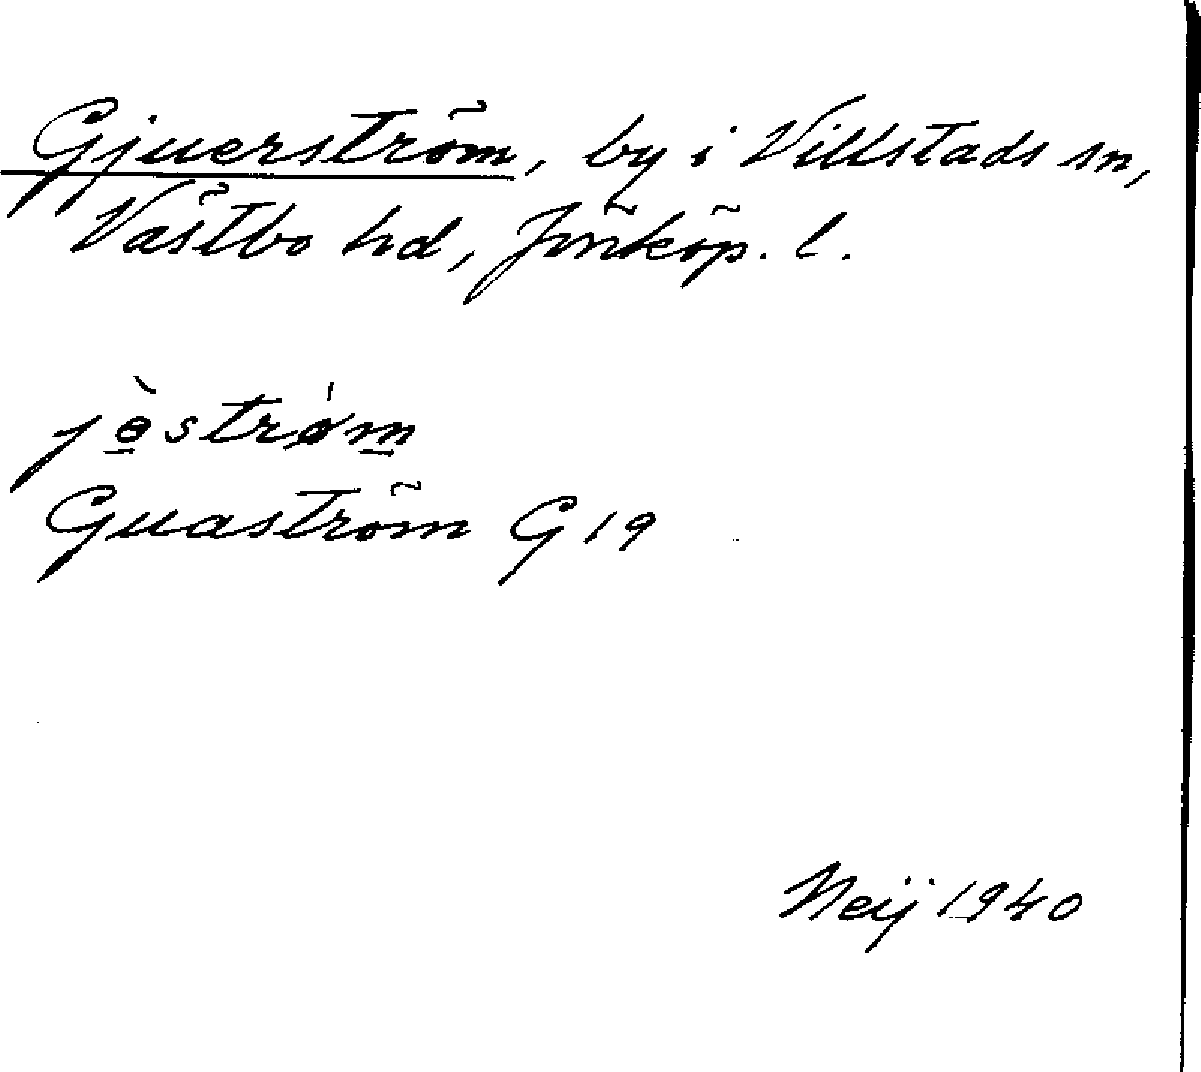 Gjuerström, by i Villstads sn,
Västbo hd, Jönköp. l.
jɵ̀strøm
Guaström G 19
Neij 1940